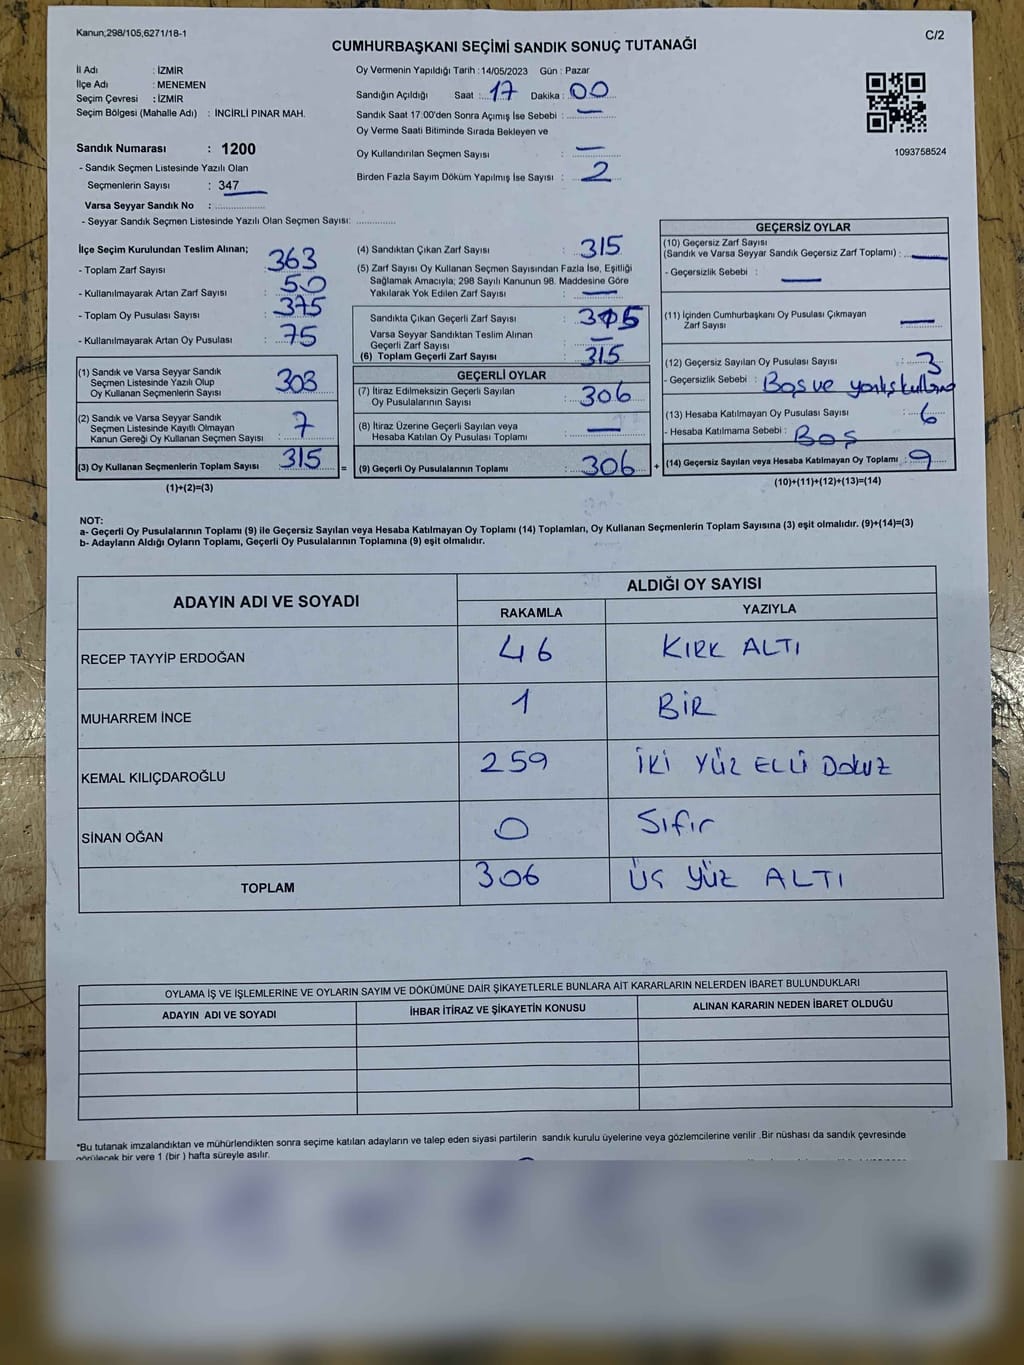 Kanun;298/105,6271/18-1
C/2
CUMHURBAŞKANI SEÇİMİ SANDIK SONUÇ TUTANAĞI
İl Adı : İZMİR
İlçe Adı : MENEMEN
Seçim Çevresi : İZMİR
Seçim Bölgesi (Mahalle Adı) : İNCİRLİ PINAR MAH.
Sandık Numarası : 1200
- Sandık Seçmen Listesinde Yazılı Olan
Seçmenlerin Sayısı : 347
Varsa Seyyar Sandık No :
- Seyyar Sandık Seçmen Listesinde Yazılı Olan Seçmen Sayısı:
Oy Vermenin Yapıldığı Tarih : 14/05/2023 Gün : Pazar
Sandığın Açıldığı Saat : 17 Dakika : 00
Sandık Saat 17:00'den Sonra Açımış İse Sebebi : —
Oy Verme Saati Bitiminde Sırada Bekleyen ve
Oy Kullandırılan Seçmen Sayısı : —
Birden Fazla Sayım Döküm Yapılmış İse Sayısı : 2
1093758524
İlçe Seçim Kurulundan Teslim Alınan;
- Toplam Zarf Sayısı : 363
- Kullanılmayarak Artan Zarf Sayısı : 50
- Toplam Oy Pusulası Sayısı : 375
- Kullanılmayarak Artan Oy Pusulası : 75
(1) Sandık ve Varsa Seyyar Sandık
Seçmen Listesinde Yazılı Olup
Oy Kullanan Seçmenlerin Sayısı : 308
(2) Sandık ve Varsa Seyyar Sandık
Seçmen Listesinde Kayıtlı Olmayan
Kanun Gereği Oy Kullanan Seçmen Sayısı : 7
(3) Oy Kullanan Seçmenlerin Toplam Sayısı : 315
(1)+(2)=(3)
(4) Sandıktan Çıkan Zarf Sayısı : 315
(5) Zarf Sayısı Oy Kullanan Seçmen Sayısından Fazla İse, Eşitliği
Sağlamak Amacıyla; 298 Sayılı Kanunun 98. Maddesine Göre
Yakılarak Yok Edilen Zarf Sayısı : —
Sandıkta Çıkan Geçerli Zarf Sayısı : 315
Varsa Seyyar Sandıktan Teslim Alınan
Geçerli Zarf Sayısı : —
(6) Toplam Geçerli Zarf Sayısı : 315
GEÇERLİ OYLAR
(7) İtiraz Edilmeksizin Geçerli Sayılan
Oy Pusulalarının Sayısı : 306
(8) İtiraz Üzerine Geçerli Sayılan veya
Hesaba Katılan Oy Pusulası Toplamı : —
= (9) Geçerli Oy Pusulalarının Toplamı : 306
GEÇERSİZ OYLAR
(10) Geçersiz Zarf Sayısı
(Sandık ve Varsa Seyyar Sandık Geçersiz Zarf Toplamı) : —
- Geçersizlik Sebebi : —
(11) İçinden Cumhurbaşkanı Oy Pusulası Çıkmayan
Zarf Sayısı —
(12) Geçersiz Sayılan Oy Pusulası Sayısı : 3
- Geçersizlik Sebebi : Boş ve yanlış
(13) Hesaba Katılmayan Oy Pusulası Sayısı : 6
- Hesaba Katılmama Sebebi : Boş
+ (14) Geçersiz Sayılan veya Hesaba Katılmayan Oy Toplamı : 9
(10)+(11)+(12)+(13)=(14)
NOT:
a- Geçerli Oy Pusulalarının Toplamı (9) ile Geçersiz Sayılan veya Hesaba Katılmayan Oy Toplamı (14) Toplamları, Oy Kullanan Seçmenlerin Toplam Sayısına (3) eşit olmalıdır. (9)+(14)=(3)
b- Adayların Aldığı Oyların Toplamı, Geçerli Oy Pusulalarının Toplamına (9) eşit olmalıdır.
ADAYIN ADI VE SOYADI
ALDIĞI OY SAYISI
RAKAMLA YAZIYLA
RECEP TAYYİP ERDOĞAN 46 KIRK ALTI
MUHARREM İNCE 1 BİR
KEMAL KILIÇDAROĞLU 259 İKİ YÜZ ELLİ DOKUZ
SİNAN OĞAN 0 Sıfır
TOPLAM 306 ÜÇ YÜZ ALTI
OYLAMA İŞ VE İŞLEMLERİNE VE OYLARIN SAYIM VE DÖKÜMÜNE DAİR ŞİKAYETLERLE BUNLARA AİT KARARLARIN NELERDEN İBARET BULUNDUKLARI
ADAYIN ADI VE SOYADI İHBAR İTİRAZ VE ŞİKAYETİN KONUSU ALINAN KARARIN NEDEN İBARET OLDUĞU
*Bu tutanak imzalandıktan ve mühürlendikten sonra seçime katılan adayların ve talep eden siyasi partilerin sandık kurulu üyelerine veya gözlemcilerine verilir .Bir nüshası da sandık çevresinde
görülecek bir yere 1 (bir ) hafta süreyle asılır.